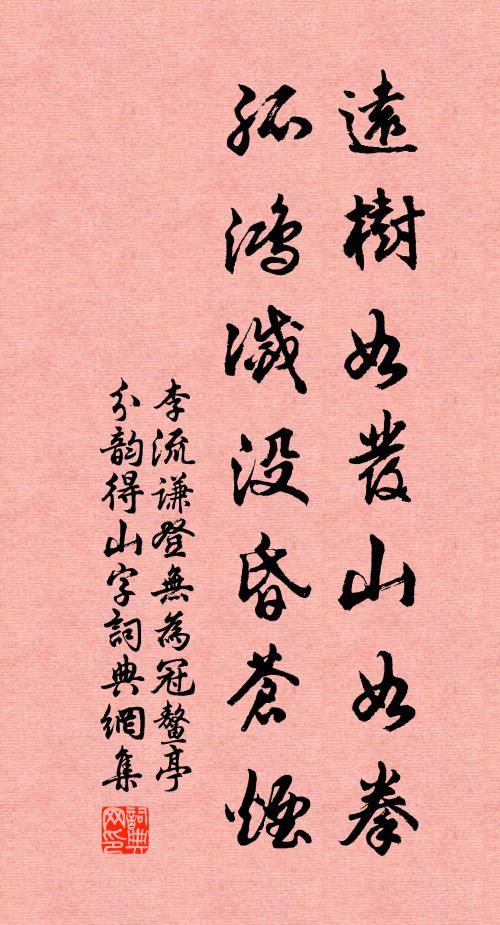 遠樹如發山如拳
孤鴻滅没昏蒼煙
李流謙登無為冠鰲亭
分韵得山字詞典網集
詞典网印